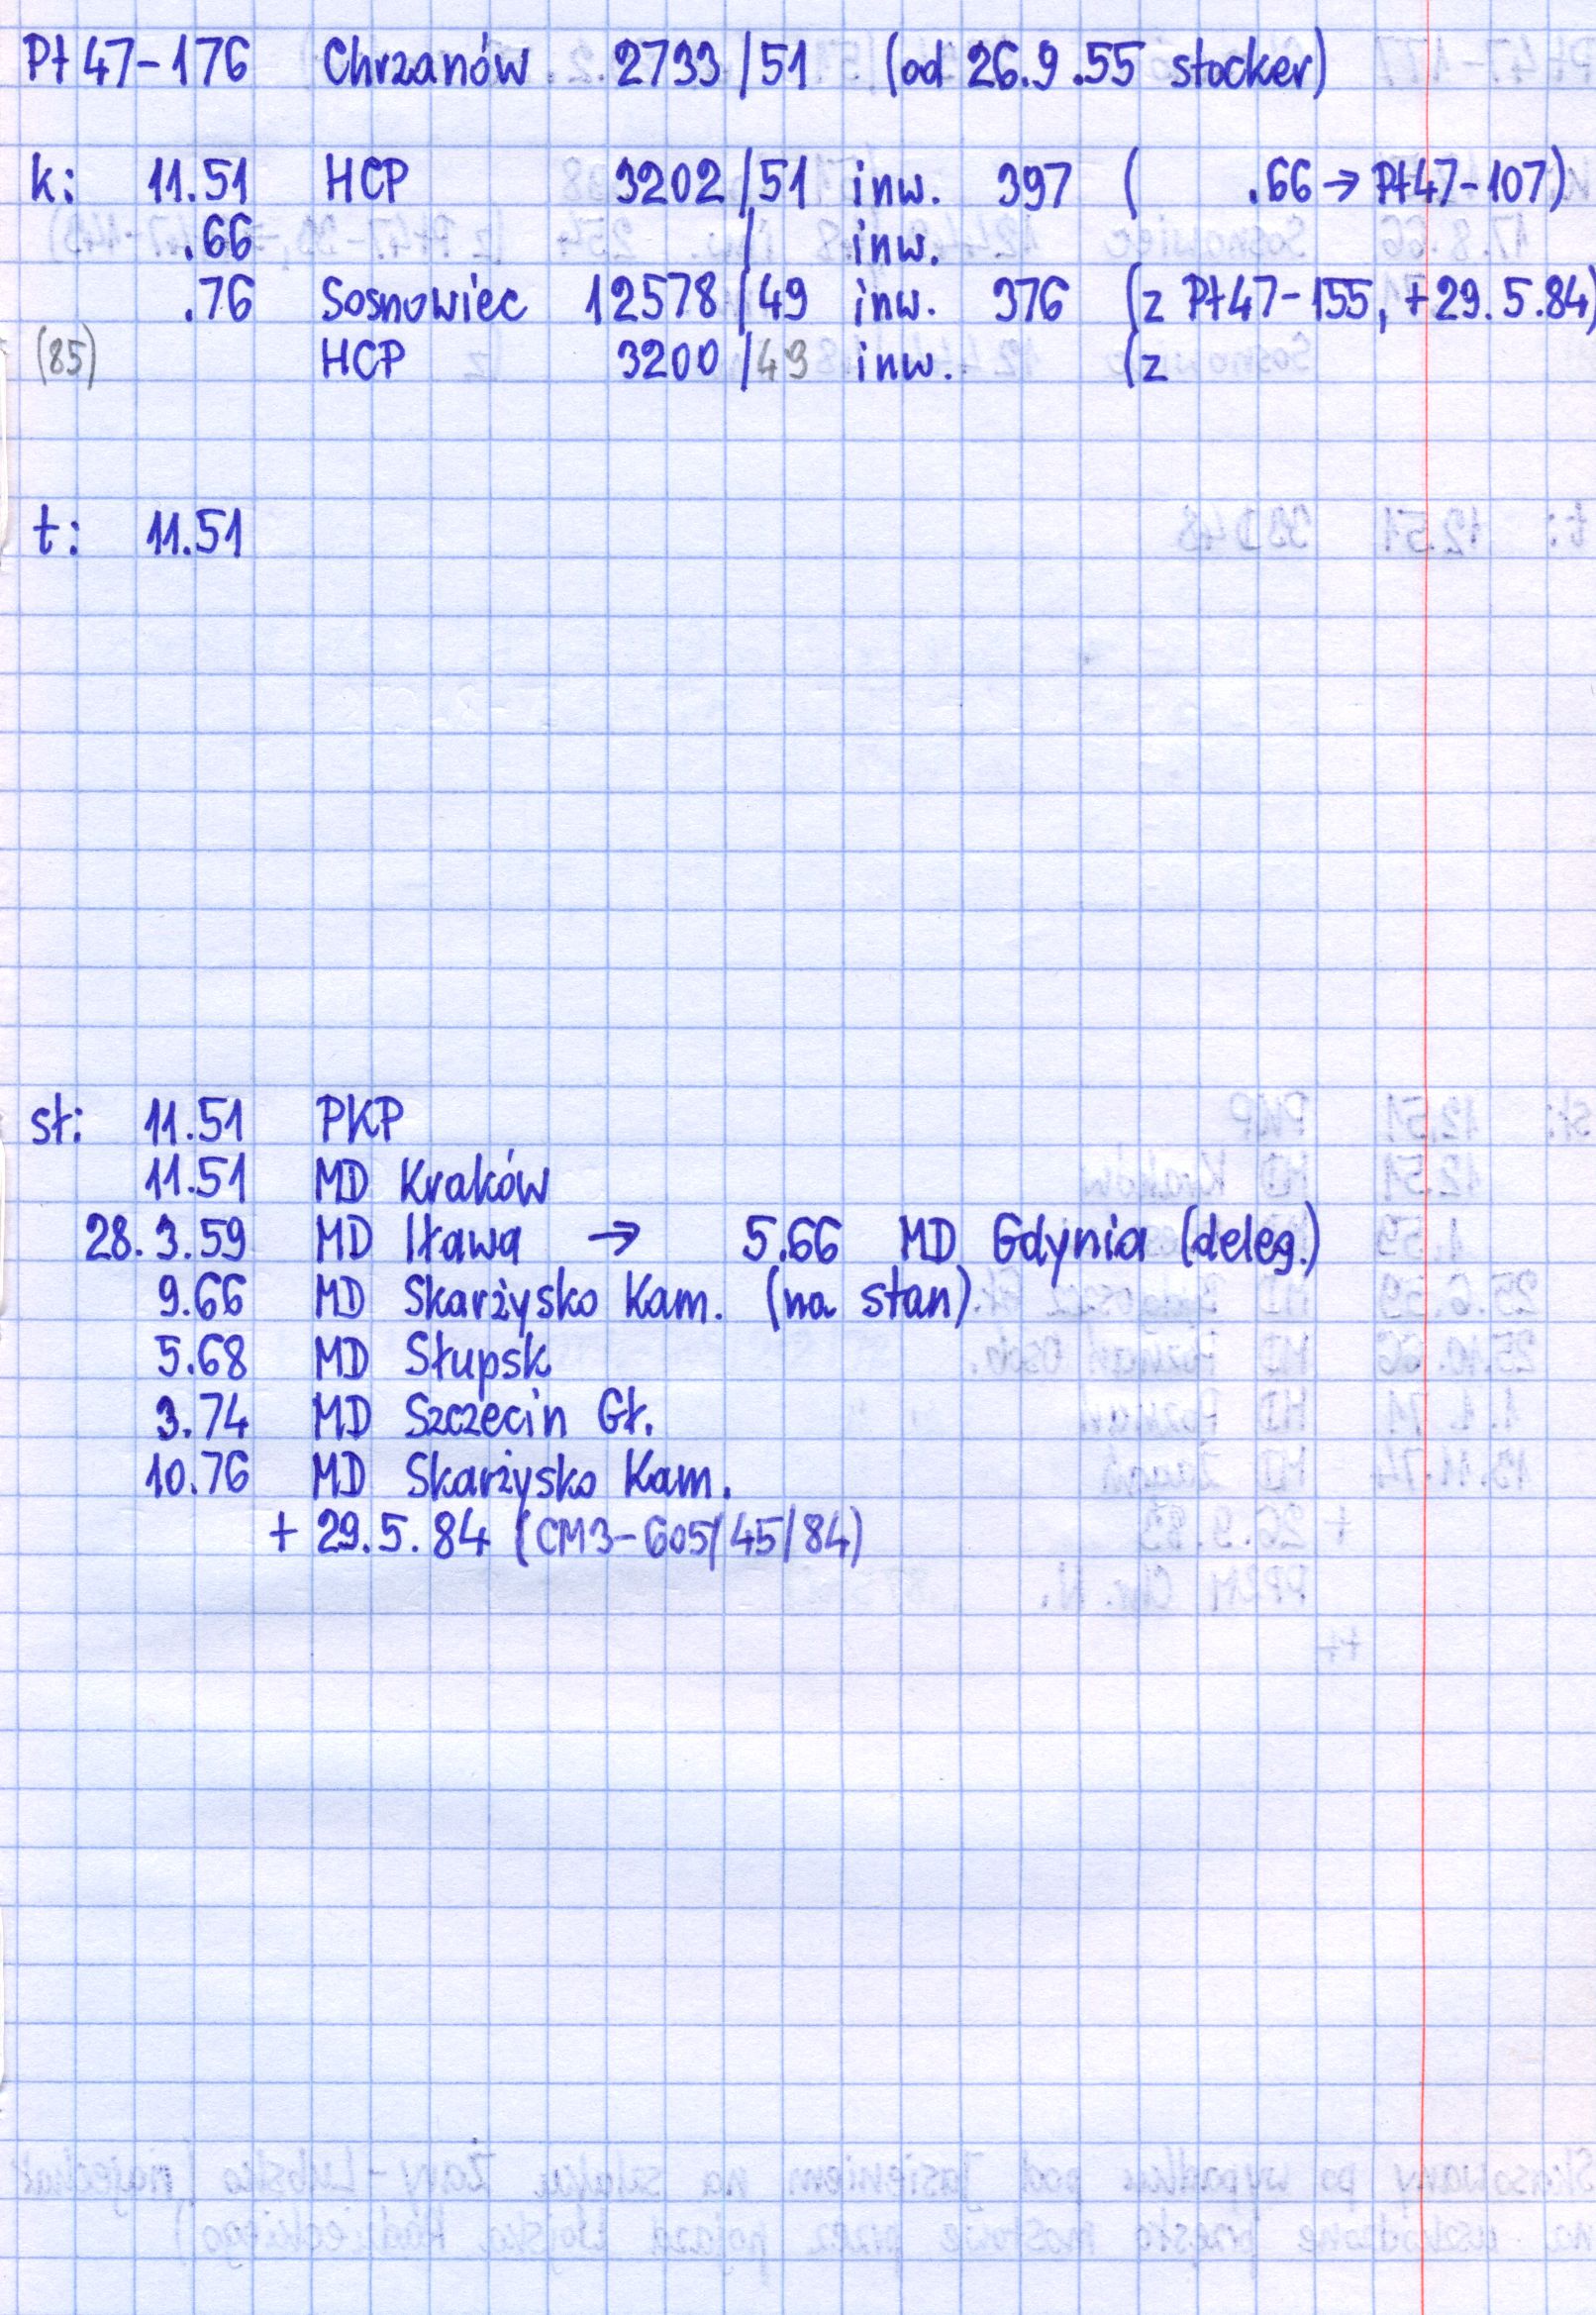 Pt47-176 Chrzanów 2733/51 (od 26.9.55 stocker)
k: 11.51 HCP 3202/51 inw. 397 ( .66 → Pt47-107)
.66 / inw.
.76 Sosnowiec 12578/49 inw. 376 (z Pt47-155, +29.5.84)
(85) HCP 3200/49 inw. (z
t: 11.51
st: 11.51 PKP
11.51 MD Kraków
28.3.59 MD Iława → 5.66 MD Gdynia (deleg.)
9.66 MD Skarżysko Kam. (na stan)
5.68 MD Słupsk
3.74 MD Szczecin Gł.
10.76 MD Skarżysko Kam.
+ 29.5.84 (CM3-605/45/84)